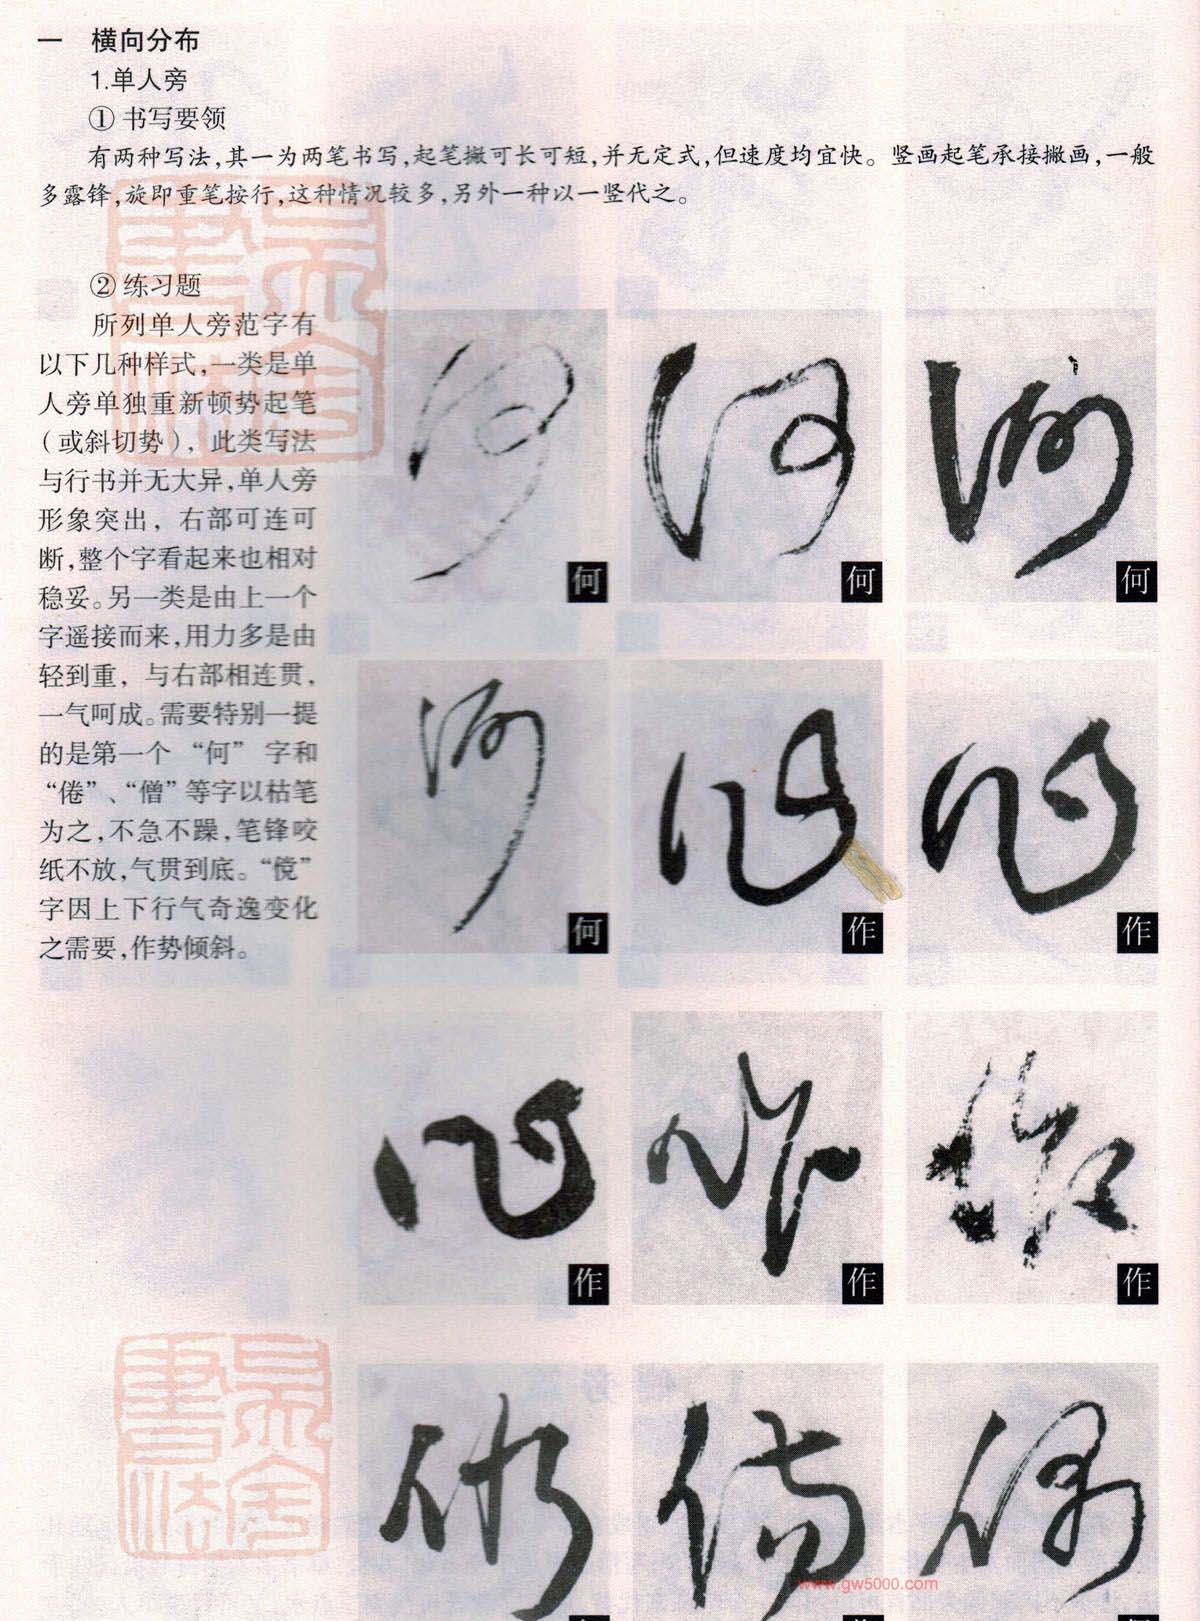 一 横向分布
1.单人旁
① 书写要领
有两种写法,其一为两笔书写,起笔撇可长可短,并无定式,但速度均宜快。竖画起笔承接撇画,一般
多露锋,旋即重笔按行,这种情况较多,另外一种以一竖代之。
② 练习题
所列单人旁范字有
以下几种样式,一类是单
人旁单独重新顿势起笔
（或斜切势），此类写法
与行书并无大异,单人旁
形象突出，右部可连可
断,整个字看起来也相对
稳妥。另一类是由上一个
字遥接而来,用力多是由
轻到重，与右部相连贯,
一气呵成。需要特别一提
的是第一个“何”字和
“倦”、“僧”等字以枯笔
为之,不急不躁,笔锋咬
纸不放,气贯到底。“傥”
字因上下行气奇逸变化
之需要,作势倾斜。
何 何 何
何 作 作
作 作 作
www.gw5000.com